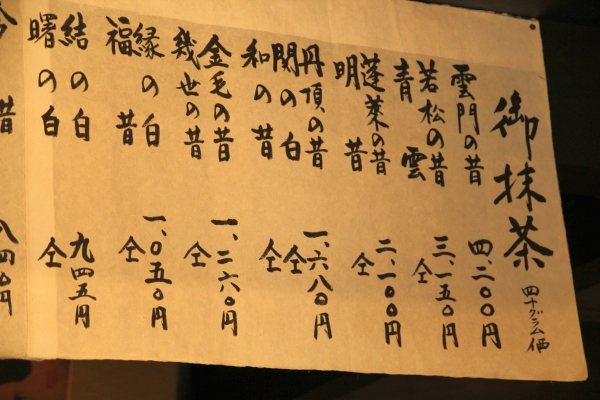 御抹茶 四十グラム価
雲門の昔 四、二〇〇円
若松の昔 三、一五〇円
青雲 仝
蓬莱の昔 二、一〇〇円
明昔 仝
丹頂の昔 一、六八〇円
関の白 仝
和の昔 仝
金毛の昔 一、二六〇円
幾世の昔 仝
縁の白 一、〇五〇円
福昔 仝
結の白 九四五円
曙の白 仝
昔 八四〇円